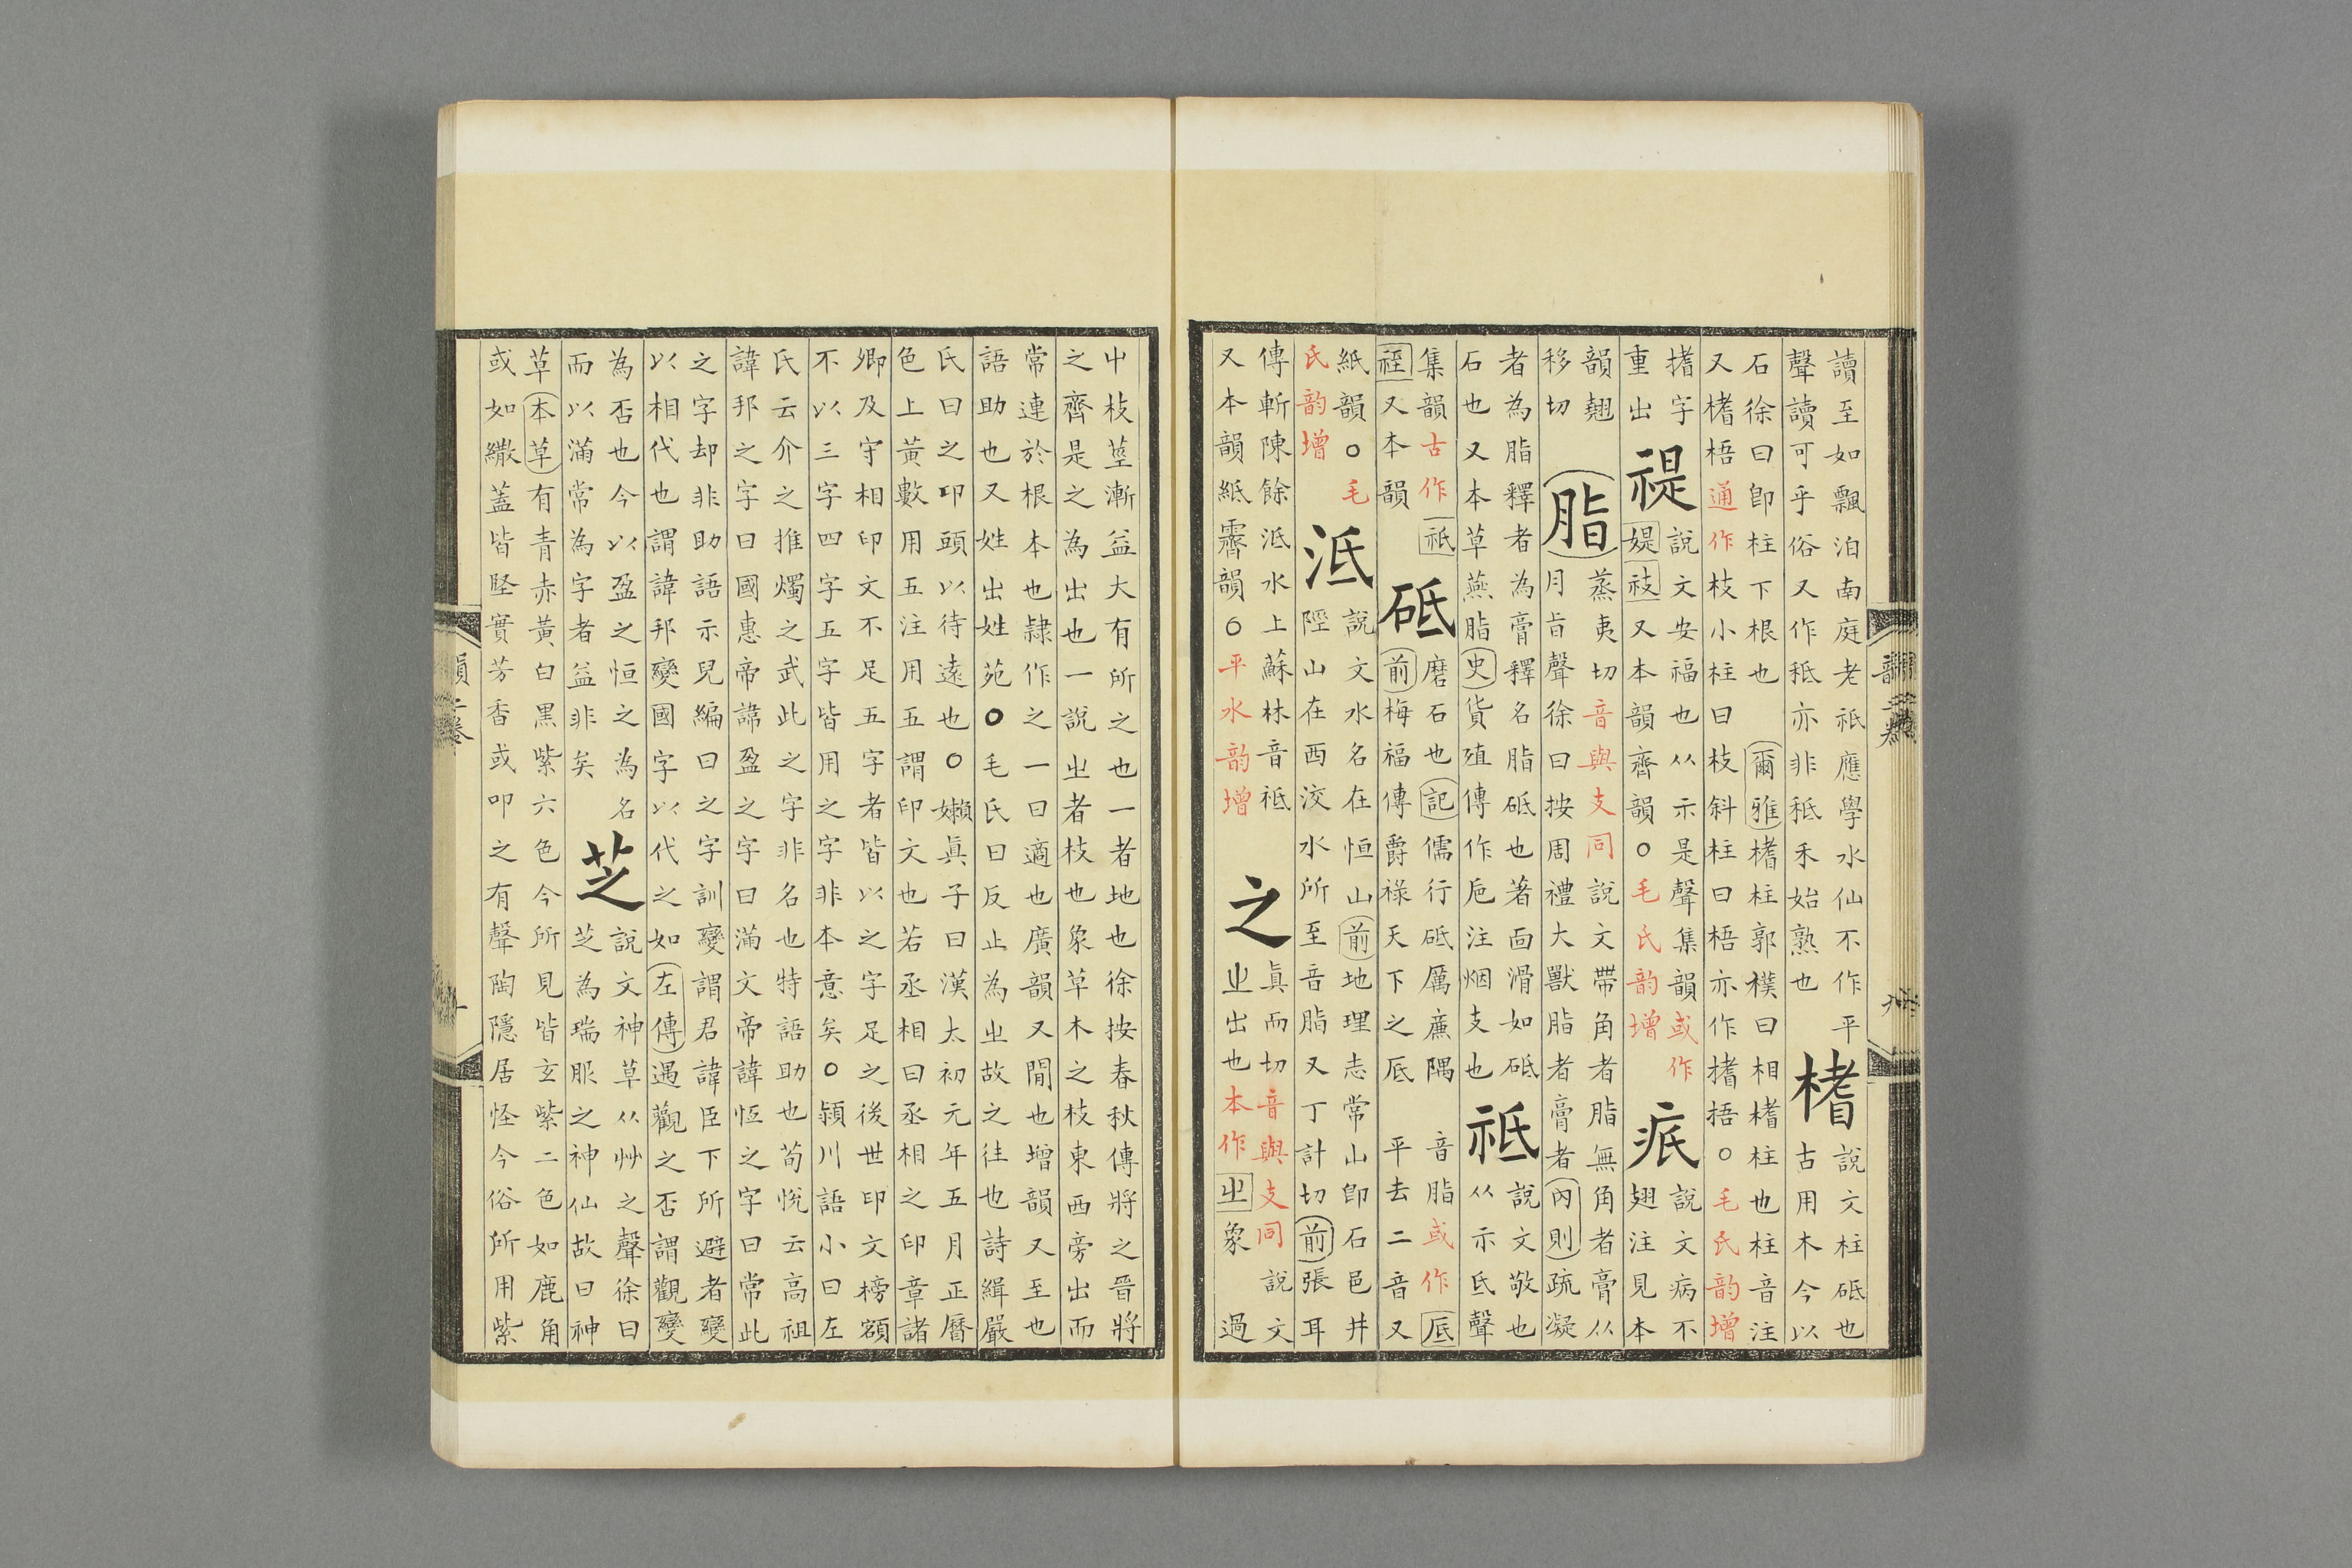 讀至如飄泊南庭老祇應學水仙不作平
聲讀可乎俗又作秖亦非秖禾始熟也
榰
說文柱砥也
古用木今以
石徐曰卽柱下根也
爾雅榰柱郭樸曰相榰柱也柱音注
又榰梧通作枝小柱曰枝斜柱曰梧亦作搘捂○毛氏韵增
搘字
重出
禔
說文安福也从示是聲集韻或作
媞衼又本韻齊韻○毛氏韵增
疷
說文病不
翅注見本
韻翹
移切
脂
蒸夷切音與支同說文帶角者脂無角者膏从
月旨聲徐曰按周禮大獸脂者膏者內則疏凝
者為脂釋者為膏釋名脂砥也著面滑如砥
石也又本草燕脂史貨殖傳作巵注烟支也
祗
說文敬也
从示氐聲
集韻古作祇
䄇又本韻
砥
磨石也記儒行砥厲廉隅
前梅福傳爵祿天下之厎
音脂或作厎
平去二音又
紙韻○毛
氏韵增
泜
說文水名在恒山前地理志常山卽石邑井
陘山在西洨水所至音脂又丁計切前張耳
傳斬陳餘泜水上蘇林音祗
又本韻紙霽韻○平水韵增
之
眞而切音與支同說文
㞢出也本作㞢象過
屮枝莖漸益大有所之也一者地也徐按春秋傳將之晉將
之齊是之為出也一說㞢者枝也象草木之枝東西旁出而
常連於根本也隸作之一曰適也廣韻又閒也增韻又至也
語助也又姓出姓苑○毛氏曰反止為㞢故之往也詩緝嚴
氏曰之卬頭以待遠也○嬾眞子曰漢太初元年五月正曆
色上黃數用五注用五謂印文也若丞相曰丞相之印章諸
卿及守相印文不足五字者皆以之字足之後世印文榜額
不以三字四字五字皆用之字非本意矣○潁川語小曰左
氏云介之推燭之武此之字非名也特語助也荀悅云高祖
諱邦之字曰國惠帝諱盈之字曰滿文帝諱恆之字曰常此
之字却非助語示兒編曰之字訓變謂君諱臣下所避者變
以相代也謂諱邦變國字以代之如左傳遇觀之否謂觀變
為否也今以盈之恒之為名
而以滿常為字者益非矣
芝
說文神草从艸之聲徐曰
芝為瑞服之神仙故曰神
草本草有青赤黃白黑紫六色今所見皆玄紫二色如鹿角
或如繖蓋皆堅實芳香或叩之有聲陶隱居怪今俗所用紫